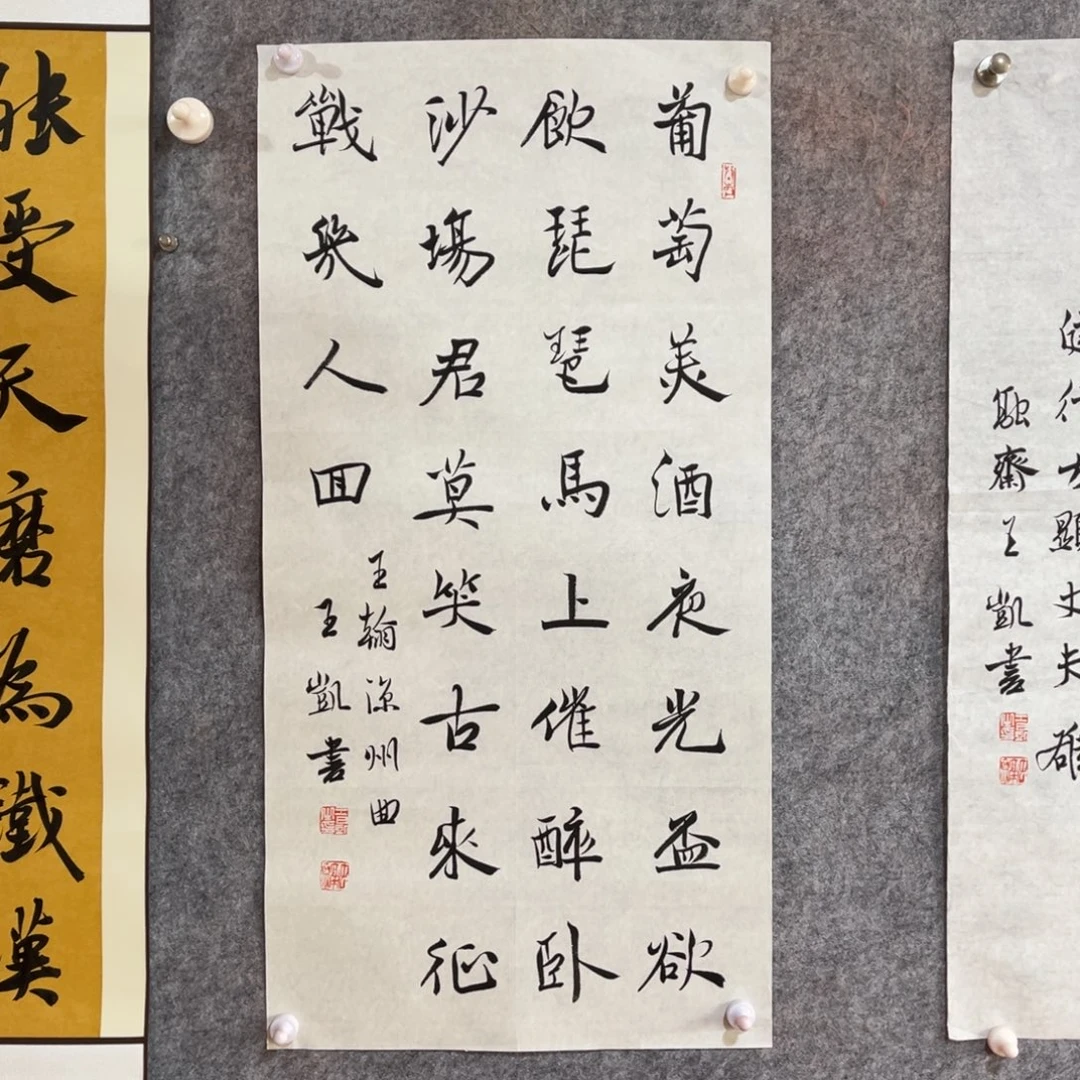 行大顯丈夫
融齋王凱書
葡萄美酒夜光盃欲
飲琵琶馬上催醉卧
沙場君莫笑古來征
戰幾人回
王翰涼州曲
王凱書
能受天磨為鐵漢